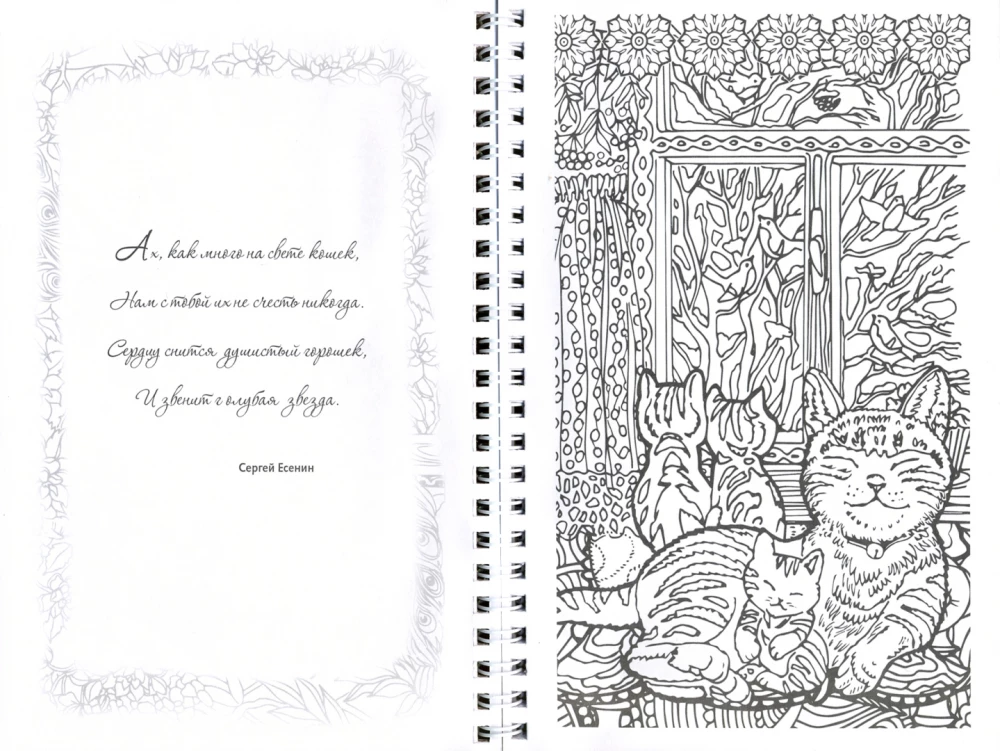 Ах, как много на свете кошек,
Нам с тобой их не счесть никогда.
Сердцу снится душистый горошек,
И звенит голубая звезда.
Сергей Есенин